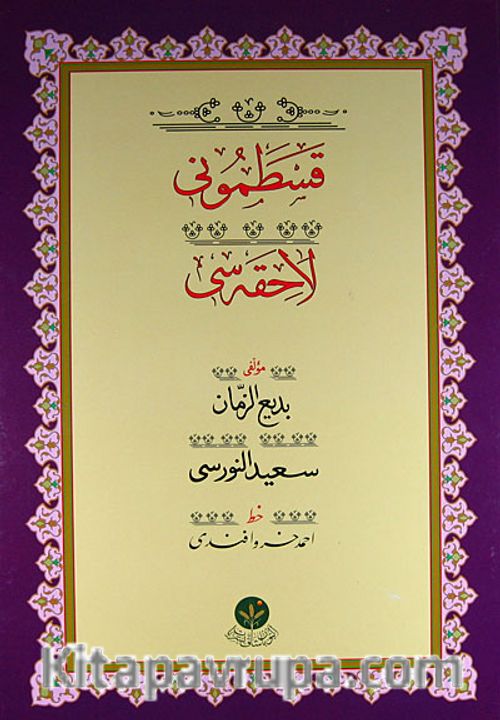 قَسْطَمُونِي
لَاحِقَه سِي
مؤلّفى
بديع الزّمان
سعيد النورسى
خط
احمد خسرو افندى
Kitapavrupa.com